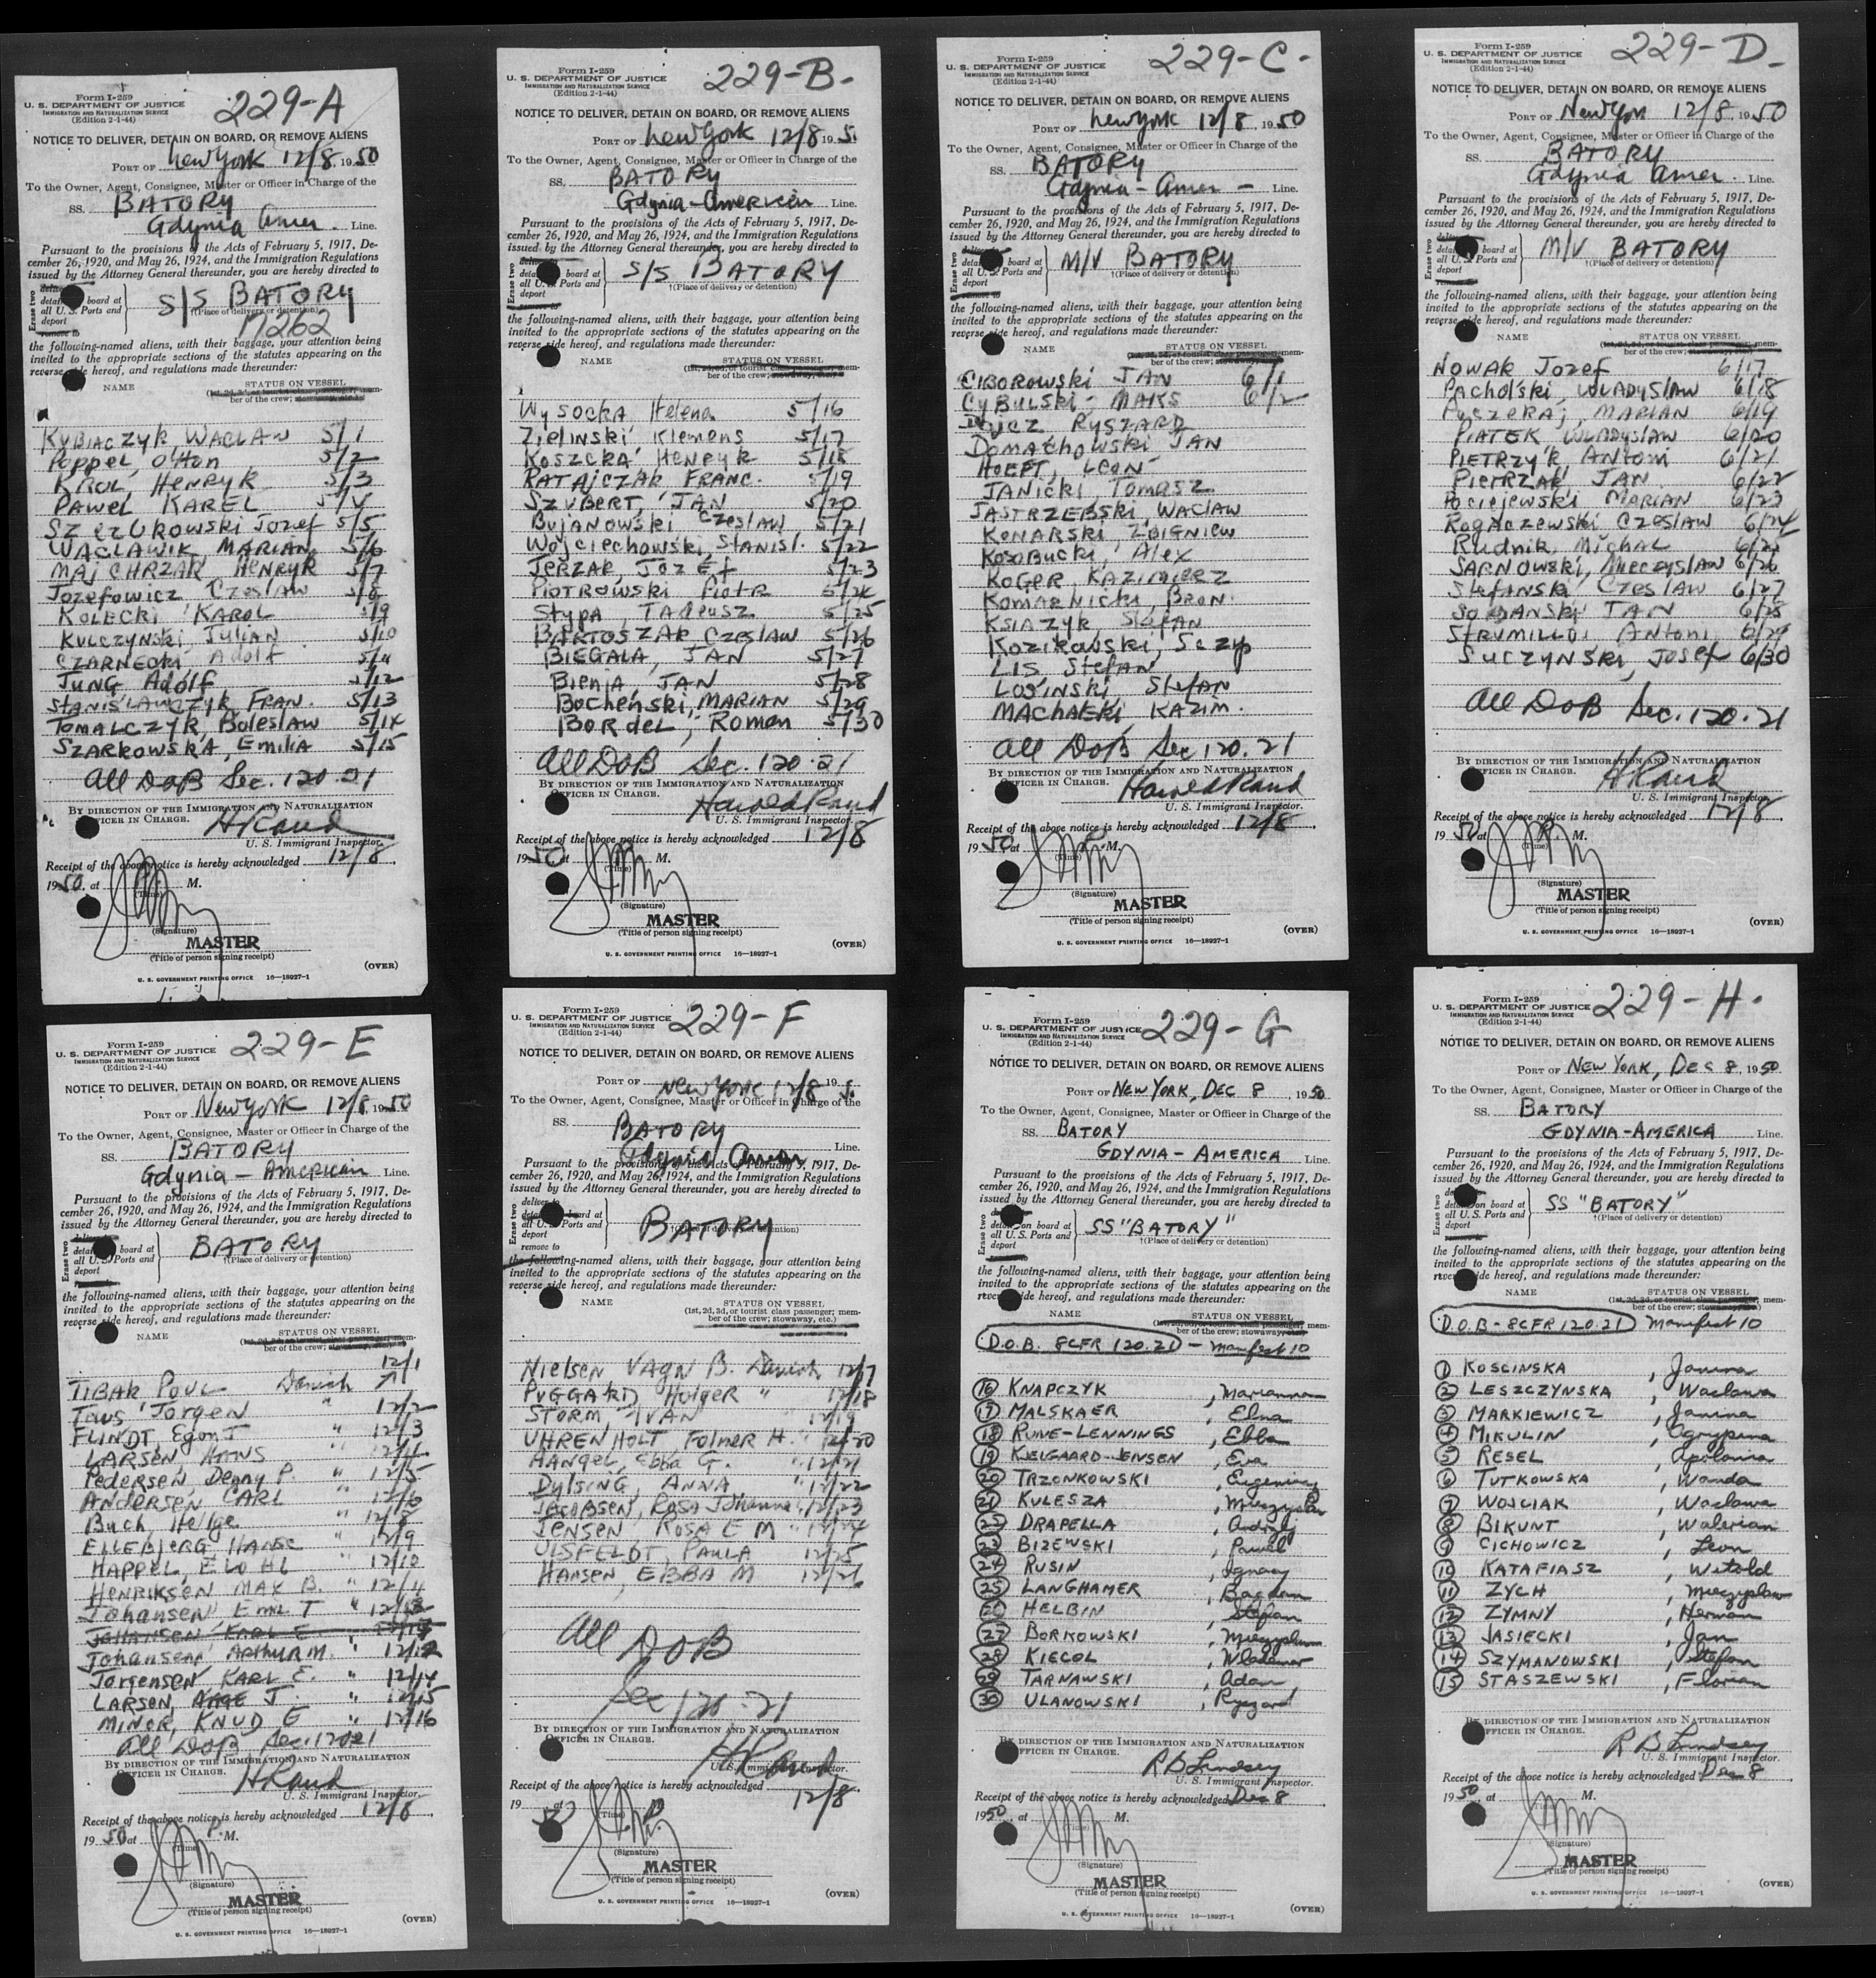 Form I-259
U. S. DEPARTMENT OF JUSTICE
IMMIGRATION AND NATURALIZATION SERVICE
(Edition 2-1-44)
229-A
NOTICE TO DELIVER, DETAIN ON BOARD, OR REMOVE ALIENS
PORT OF New York 12/8 1950
To the Owner, Agent, Consignee, Master or Officer in Charge of the
SS. BATORY
Gdynia Amer. Line.
Pursuant to the provisions of the Acts of February 5, 1917, De-
cember 26, 1920, and May 26, 1924, and the Immigration Regulations
issued by the Attorney General thereunder, you are hereby directed to
Erase two
board at
all U. S. Ports and
deport
remove to
S/S BATORY
†(Place of delivery or detention)
17262
the following-named aliens, with their baggage, your attention being
invited to the appropriate sections of the statutes appearing on the
reverse side hereof, and regulations made thereunder:
NAME STATUS ON VESSEL
(1st, 2d, 3d, or tourist class passenger; mem-
ber of the crew; stowaway, etc.)
KUBIACZYK, WACLAW 5/1
Poppel, Otton 5/2
KROL, HENRYK 5/3
PAWEL KAREL 5/4
SZCZUROWSKI Jozef 5/5
WACLAWIK, MARIAN 5/6
MAJCHRZAK HENRYK 5/7
Jozefowicz Czeslaw 5/8
KOLECKI KAROL 5/9
KULCZYNSKI, Julian 5/10
CZARNECKI Adolf 5/11
JUNG Adolf 5/12
STANISLAWCZYK, FRAN. 5/13
TOMALCZYK, Boleslaw 5/14
SZARKOWSKA, Emilia 5/15
All DOB Sec. 120.21
BY DIRECTION OF THE IMMIGRATION AND NATURALIZATION
OFFICER IN CHARGE.
H Rand
U. S. Immigrant Inspector.
Receipt of the above notice is hereby acknowledged 12/8,
1950, at M.
(Time)
(Signature)
MASTER
(Title of person signing receipt)
U. S. GOVERNMENT PRINTING OFFICE 16—18927-1
(OVER)
Form I-259
U. S. DEPARTMENT OF JUSTICE
IMMIGRATION AND NATURALIZATION SERVICE
(Edition 2-1-44)
229-B-
NOTICE TO DELIVER, DETAIN ON BOARD, OR REMOVE ALIENS
PORT OF New York 12/8 195
To the Owner, Agent, Consignee, Master or Officer in Charge of the
SS. BATORY
Gdynia-American Line.
Pursuant to the provisions of the Acts of February 5, 1917, De-
cember 26, 1920, and May 26, 1924, and the Immigration Regulations
issued by the Attorney General thereunder, you are hereby directed to
Erase two
board at
all U. S. Ports and
deport
remove to
S/S BATORY
†(Place of delivery or detention)
the following-named aliens, with their baggage, your attention being
invited to the appropriate sections of the statutes appearing on the
reverse side hereof, and regulations made thereunder:
NAME STATUS ON VESSEL
(1st, 2d, 3d, or tourist class passenger; mem-
ber of the crew; stowaway, etc.)
Wysocka Helena 5/16
Zielinski Klemens 5/17
KOSZCKA HENRYK 5/18
RATAJCZAK FRANC. 5/19
SZUBERT, JAN 5/20
Bujanowski Czeslaw 5/21
Wojciechowski, Stanisl. 5/22
JERZAK, Jozef 5/23
PIOTROWSKI Piotr 5/24
Stypa, Tadeusz 5/25
BARTOSZAK CZESLAW 5/26
BIEGALA, JAN 5/27
Bienja, JAN 5/28
Bochenski, MARIAN 5/29
BORdeL, Roman 5/30
All DOB Sec. 120.21
BY DIRECTION OF THE IMMIGRATION AND NATURALIZATION
OFFICER IN CHARGE.
Harold Rand
U. S. Immigrant Inspector.
Receipt of the above notice is hereby acknowledged 12/8
1950 at M.
(Time)
(Signature)
MASTER
(Title of person signing receipt)
(OVER)
U. S. GOVERNMENT PRINTING OFFICE 16—18927-1
Form I-259
U. S. DEPARTMENT OF JUSTICE
IMMIGRATION AND NATURALIZATION SERVICE
(Edition 2-1-44)
229-C-
NOTICE TO DELIVER, DETAIN ON BOARD, OR REMOVE ALIENS
PORT OF New York 12/8 1950
To the Owner, Agent, Consignee, Master or Officer in Charge of the
SS. BATORY
Gdynia-Amer- Line.
Pursuant to the provisions of the Acts of February 5, 1917, De-
cember 26, 1920, and May 26, 1924, and the Immigration Regulations
issued by the Attorney General thereunder, you are hereby directed to
Erase two
board at
all U. S. Ports and
deport
remove to
M/V BATORY
†(Place of delivery or detention)
the following-named aliens, with their baggage, your attention being
invited to the appropriate sections of the statutes appearing on the
reverse side hereof, and regulations made thereunder:
NAME STATUS ON VESSEL
(1st, 2d, 3d, or tourist class passenger; mem-
ber of the crew; stowaway, etc.)
CIBOROWSKI JAN 6/1
CYBULSKI- MAKS 6/2
RYSZARD
Domachowski JAN
HOEFT, LEON
JANICKI, Tomasz
JASTRZEBSKI, WACLAW
KONARSKI, ZBIGNIEW
Kosobucki, Alex
KOGER, KAZIMIERZ
KOMARNICKI, BRON.
KSIAZYK, Stefan
Kozikowski, Sczep
LIS, Stefan
LOSINSKI Stefan
MACHALSKI KAZIM.
All DOB Sec 120.21
BY DIRECTION OF THE IMMIGRATION AND NATURALIZATION
OFFICER IN CHARGE.
Harold Rand
U. S. Immigrant Inspector.
Receipt of the above notice is hereby acknowledged 12/8,
1950, at P.M.
(Time)
(Signature)
MASTER
(Title of person signing receipt)
(OVER)
U. S. GOVERNMENT PRINTING OFFICE 16—18927-1
Form I-259
U. S. DEPARTMENT OF JUSTICE
IMMIGRATION AND NATURALIZATION SERVICE
(Edition 2-1-44)
229-D-
NOTICE TO DELIVER, DETAIN ON BOARD, OR REMOVE ALIENS
PORT OF New York 12/8 1950
To the Owner, Agent, Consignee, Master or Officer in Charge of the
SS. BATORY
Gdynia Amer. Line.
Pursuant to the provisions of the Acts of February 5, 1917, De-
cember 26, 1920, and May 26, 1924, and the Immigration Regulations
issued by the Attorney General thereunder, you are hereby directed to
Erase two
board at
all U. S. Ports and
deport
M/V BATORY
†(Place of delivery or detention)
the following-named aliens, with their baggage, your attention being
invited to the appropriate sections of the statutes appearing on the
reverse side hereof, and regulations made thereunder:
NAME STATUS ON VESSEL
(1st, 2d, 3d, or tourist class passenger; mem-
ber of the crew; stowaway, etc.)
NOWAK Jozef 6/17
Pacholski, WLADYSLAW 6/18
MARIAN 6/19
PIATEK, WLADYSLAW 6/20
PIETRZYK Antoni 6/21
PIETRZAK, JAN 6/22
Pociejewski MARIAN 6/23
Rogaczewski CZESLAW 6/24
Rudnik, Michal 6/25
SARNOWSKI, Mieczyslaw 6/26
Stefanski CZESLAW 6/27
JAN 6/28
STRUMILLO, Antoni 6/29
SUCZYNSKI, JOSEF 6/30
All DOB Sec. 120.21
BY DIRECTION OF THE IMMIGRATION AND NATURALIZATION
OFFICER IN CHARGE.
H Rand
U. S. Immigrant Inspector.
Receipt of the above notice is hereby acknowledged 12/8,
1950 at P.M.
(Time)
(Signature)
MASTER
(Title of person signing receipt)
(OVER)
U. S. GOVERNMENT PRINTING OFFICE 16—18927-1
Form I-259
U. S. DEPARTMENT OF JUSTICE
IMMIGRATION AND NATURALIZATION SERVICE
(Edition 2-1-44)
229-E
NOTICE TO DELIVER, DETAIN ON BOARD, OR REMOVE ALIENS
PORT OF New York 12/8 1950
To the Owner, Agent, Consignee, Master or Officer in Charge of the
SS. BATORY
Gdynia-American Line.
Pursuant to the provisions of the Acts of February 5, 1917, De-
cember 26, 1920, and May 26, 1924, and the Immigration Regulations
issued by the Attorney General thereunder, you are hereby directed to
Erase two
board at
all U. S. Ports and
deport
BATORY
†(Place of delivery or detention)
the following-named aliens, with their baggage, your attention being
invited to the appropriate sections of the statutes appearing on the
reverse side hereof, and regulations made thereunder:
NAME STATUS ON VESSEL
(1st, 2d, 3d, or tourist class passenger; mem-
ber of the crew; stowaway, etc.)
TIBAK POUL Danish 12/1
Jorgen " 12/2
FLINDT, Egon J " 12/3
LARSEN, HANS " 12/4
Pedersen, Denny P. " 12/5
ANDERSEN CARL " 12/6
Buch, Hellge " 12/8
ELLEBJERG HANS " 12/9
HAPPEL, " 12/10
HENRIKSEN MAX B. " 12/11
Johansen Emil T " 12/12
Johansen, KARL E. "
Johansen ARTHUR M. "
Jorgensen, KARL E. " 12/14
LARSEN, AAGE J. " 12/15
MINOR, KNUD G " 12/16
All DOB Sec. 120.21
BY DIRECTION OF THE IMMIGRATION AND NATURALIZATION
OFFICER IN CHARGE.
H Rand
U. S. Immigrant Inspector.
Receipt of the above notice is hereby acknowledged 12/8,
1950 at P.M.
(Time)
(Signature)
MASTER
(Title of person signing receipt)
(OVER)
U. S. GOVERNMENT PRINTING OFFICE 16—18927-1
Form I-259
U. S. DEPARTMENT OF JUSTICE
IMMIGRATION AND NATURALIZATION SERVICE
(Edition 2-1-44)
229-F
NOTICE TO DELIVER, DETAIN ON BOARD, OR REMOVE ALIENS
PORT OF New York 12/8 195
To the Owner, Agent, Consignee, Master or Officer in Charge of the
SS. BATORY
Gdynia Amer Line.
Pursuant to the provisions of the Acts of February 5, 1917, De-
cember 26, 1920, and May 26, 1924, and the Immigration Regulations
issued by the Attorney General thereunder, you are hereby directed to
Erase two
deliver to
detain on board at
all U. S. Ports and
deport
remove to
BATORY
†(Place of delivery or detention)
the following-named aliens, with their baggage, your attention being
invited to the appropriate sections of the statutes appearing on the
reverse side hereof, and regulations made thereunder:
NAME STATUS ON VESSEL
(1st, 2d, 3d, or tourist class passenger; mem-
ber of the crew; stowaway, etc.)
Nielsen VAGN B. Danish 12/17
PUGGARD, Holger " 12/18
STORM, IVAN 12/19
UHRENHOLT, Folmer H. " 12/20
HANGEL, Ebba G. " 12/21
Dylsing, ANNA " 12/22
JACOBSEN, ROSA Johanne " 12/23
JENSEN ROSA E M " 12/24
ULSFELDT, PAULA 12/25
HANSEN, EBBA M 12/26
All DOB
Sec 120.21
BY DIRECTION OF THE IMMIGRATION AND NATURALIZATION
OFFICER IN CHARGE.
H Rand
U. S. Immigrant Inspector.
Receipt of the above notice is hereby acknowledged 12/8
1950 at P.M.
(Time)
(Signature)
MASTER
(Title of person signing receipt)
(OVER)
U. S. GOVERNMENT PRINTING OFFICE 16—18927-1
Form I-259
U. S. DEPARTMENT OF JUSTICE
IMMIGRATION AND NATURALIZATION SERVICE
(Edition 2-1-44)
229-G
NOTICE TO DELIVER, DETAIN ON BOARD, OR REMOVE ALIENS
PORT OF NEW YORK, DEC 8, 1950
To the Owner, Agent, Consignee, Master or Officer in Charge of the
SS. BATORY
GDYNIA-AMERICA Line.
Pursuant to the provisions of the Acts of February 5, 1917, De-
cember 26, 1920, and May 26, 1924, and the Immigration Regulations
issued by the Attorney General thereunder, you are hereby directed to
Erase two
detain on board at
all U. S. Ports and
deport
SS "BATORY"
†(Place of delivery or detention)
the following-named aliens, with their baggage, your attention being
invited to the appropriate sections of the statutes appearing on the
reverse side hereof, and regulations made thereunder:
NAME STATUS ON VESSEL
(1st, 2d, 3d, or tourist class passenger; mem-
ber of the crew; stowaway, etc.)
D.O.B. 8CFR 120.21 - Manifest 10
16 KNAPCZYK, Marianna
17 MALSKAER, Elna
18 RUNE-LENNINGS, Ebba
19 KELGAARD-JENSEN, Eva
20 TRZONKOWSKI, Eugeniusz
21 KULESZA, Mieczyslaw
22 DRAPELLA, Andrzej
23 BIZEWSKI, Pawel
24 RUSIN, Ignacy
25 LANGHAMER, Bogdan
26 HELBIN, Stefan
27 BORKOWSKI, Mieczyslaw
28 KIECOL, Wladimer
29 TARNAWSKI, Adam
30 ULANOWSKI, Ryszard
BY DIRECTION OF THE IMMIGRATION AND NATURALIZATION
OFFICER IN CHARGE.
R B Lindsey
U. S. Immigrant Inspector.
Receipt of the above notice is hereby acknowledged Dec 8,
1950, at M.
(Signature)
MASTER
(Title of person signing receipt)
(OVER)
U. S. GOVERNMENT PRINTING OFFICE 16—18927-1
Form I-259
U. S. DEPARTMENT OF JUSTICE
IMMIGRATION AND NATURALIZATION SERVICE
(Edition 2-1-44)
229-H-
NOTICE TO DELIVER, DETAIN ON BOARD, OR REMOVE ALIENS
PORT OF NEW YORK, DEC 8, 1950
To the Owner, Agent, Consignee, Master or Officer in Charge of the
SS. BATORY
GDYNIA-AMERICA Line.
Pursuant to the provisions of the Acts of February 5, 1917, De-
cember 26, 1920, and May 26, 1924, and the Immigration Regulations
issued by the Attorney General thereunder, you are hereby directed to
Erase two
detain on board at
all U. S. Ports and
deport
SS "BATORY"
†(Place of delivery or detention)
the following-named aliens, with their baggage, your attention being
invited to the appropriate sections of the statutes appearing on the
reverse side hereof, and regulations made thereunder:
NAME STATUS ON VESSEL
(1st, 2d, 3d, or tourist class passenger; mem-
ber of the crew; stowaway, etc.)
D.O.B-8CFR 120.21 Manifest 10
1 KOSCINSKA, Janina
2 LESZCZYNSKA, Waclawa
3 MARKIEWICZ, Janina
4 MIKULIN, Agrypina
5 RESEL, Apolonia
6 TUTKOWSKA, Wanda
7 WOJCIAK, Waclawa
8 BIKUNT, Walerian
9 CICHOWICZ, Leon
10 KATAFIASZ, Witold
11 ZYCH, Mieczyslaw
12 ZYMNY, Herman
13 JASIECKI, Jan
14 SZYMANOWSKI, Stefan
15 STASZEWSKI, Florian
BY DIRECTION OF THE IMMIGRATION AND NATURALIZATION
OFFICER IN CHARGE.
R B Lindsey
U. S. Immigrant Inspector.
Receipt of the above notice is hereby acknowledged Dec 8,
1950, at M.
(Signature)
MASTER
(Title of person signing receipt)
(OVER)
U. S. GOVERNMENT PRINTING OFFICE 16—18927-1